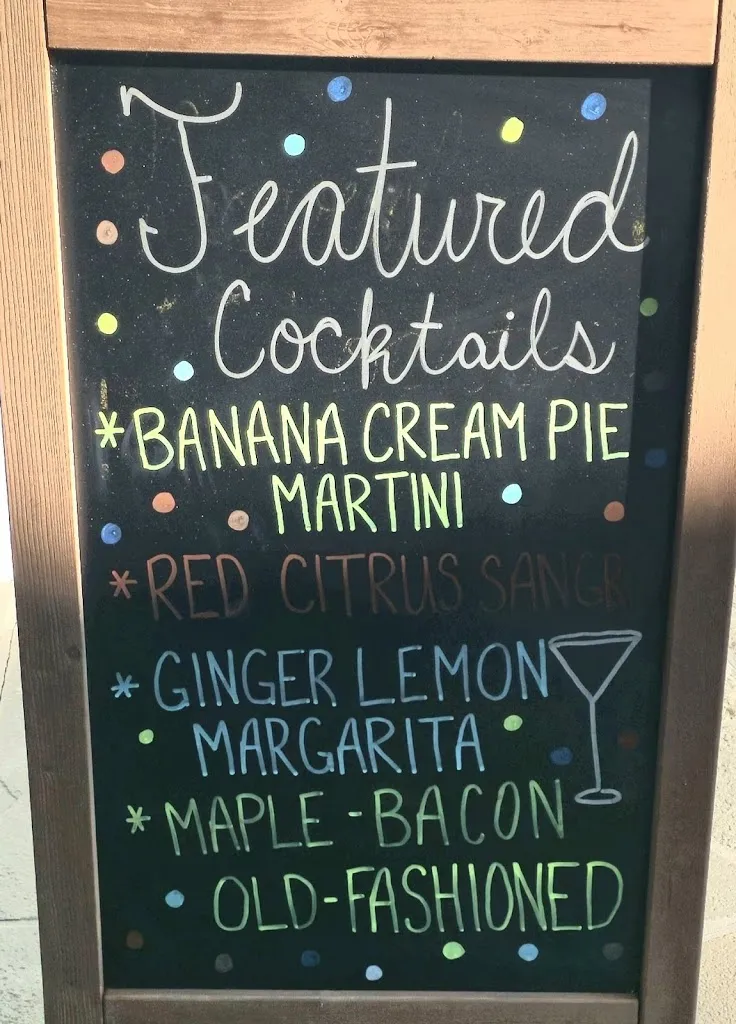 Featured
Cocktails
*BANANA CREAM PIE
MARTINI
*RED CITRUS SANGR
*GINGER LEMON
MARGARITA
*MAPLE-BACON
OLD-FASHIONED